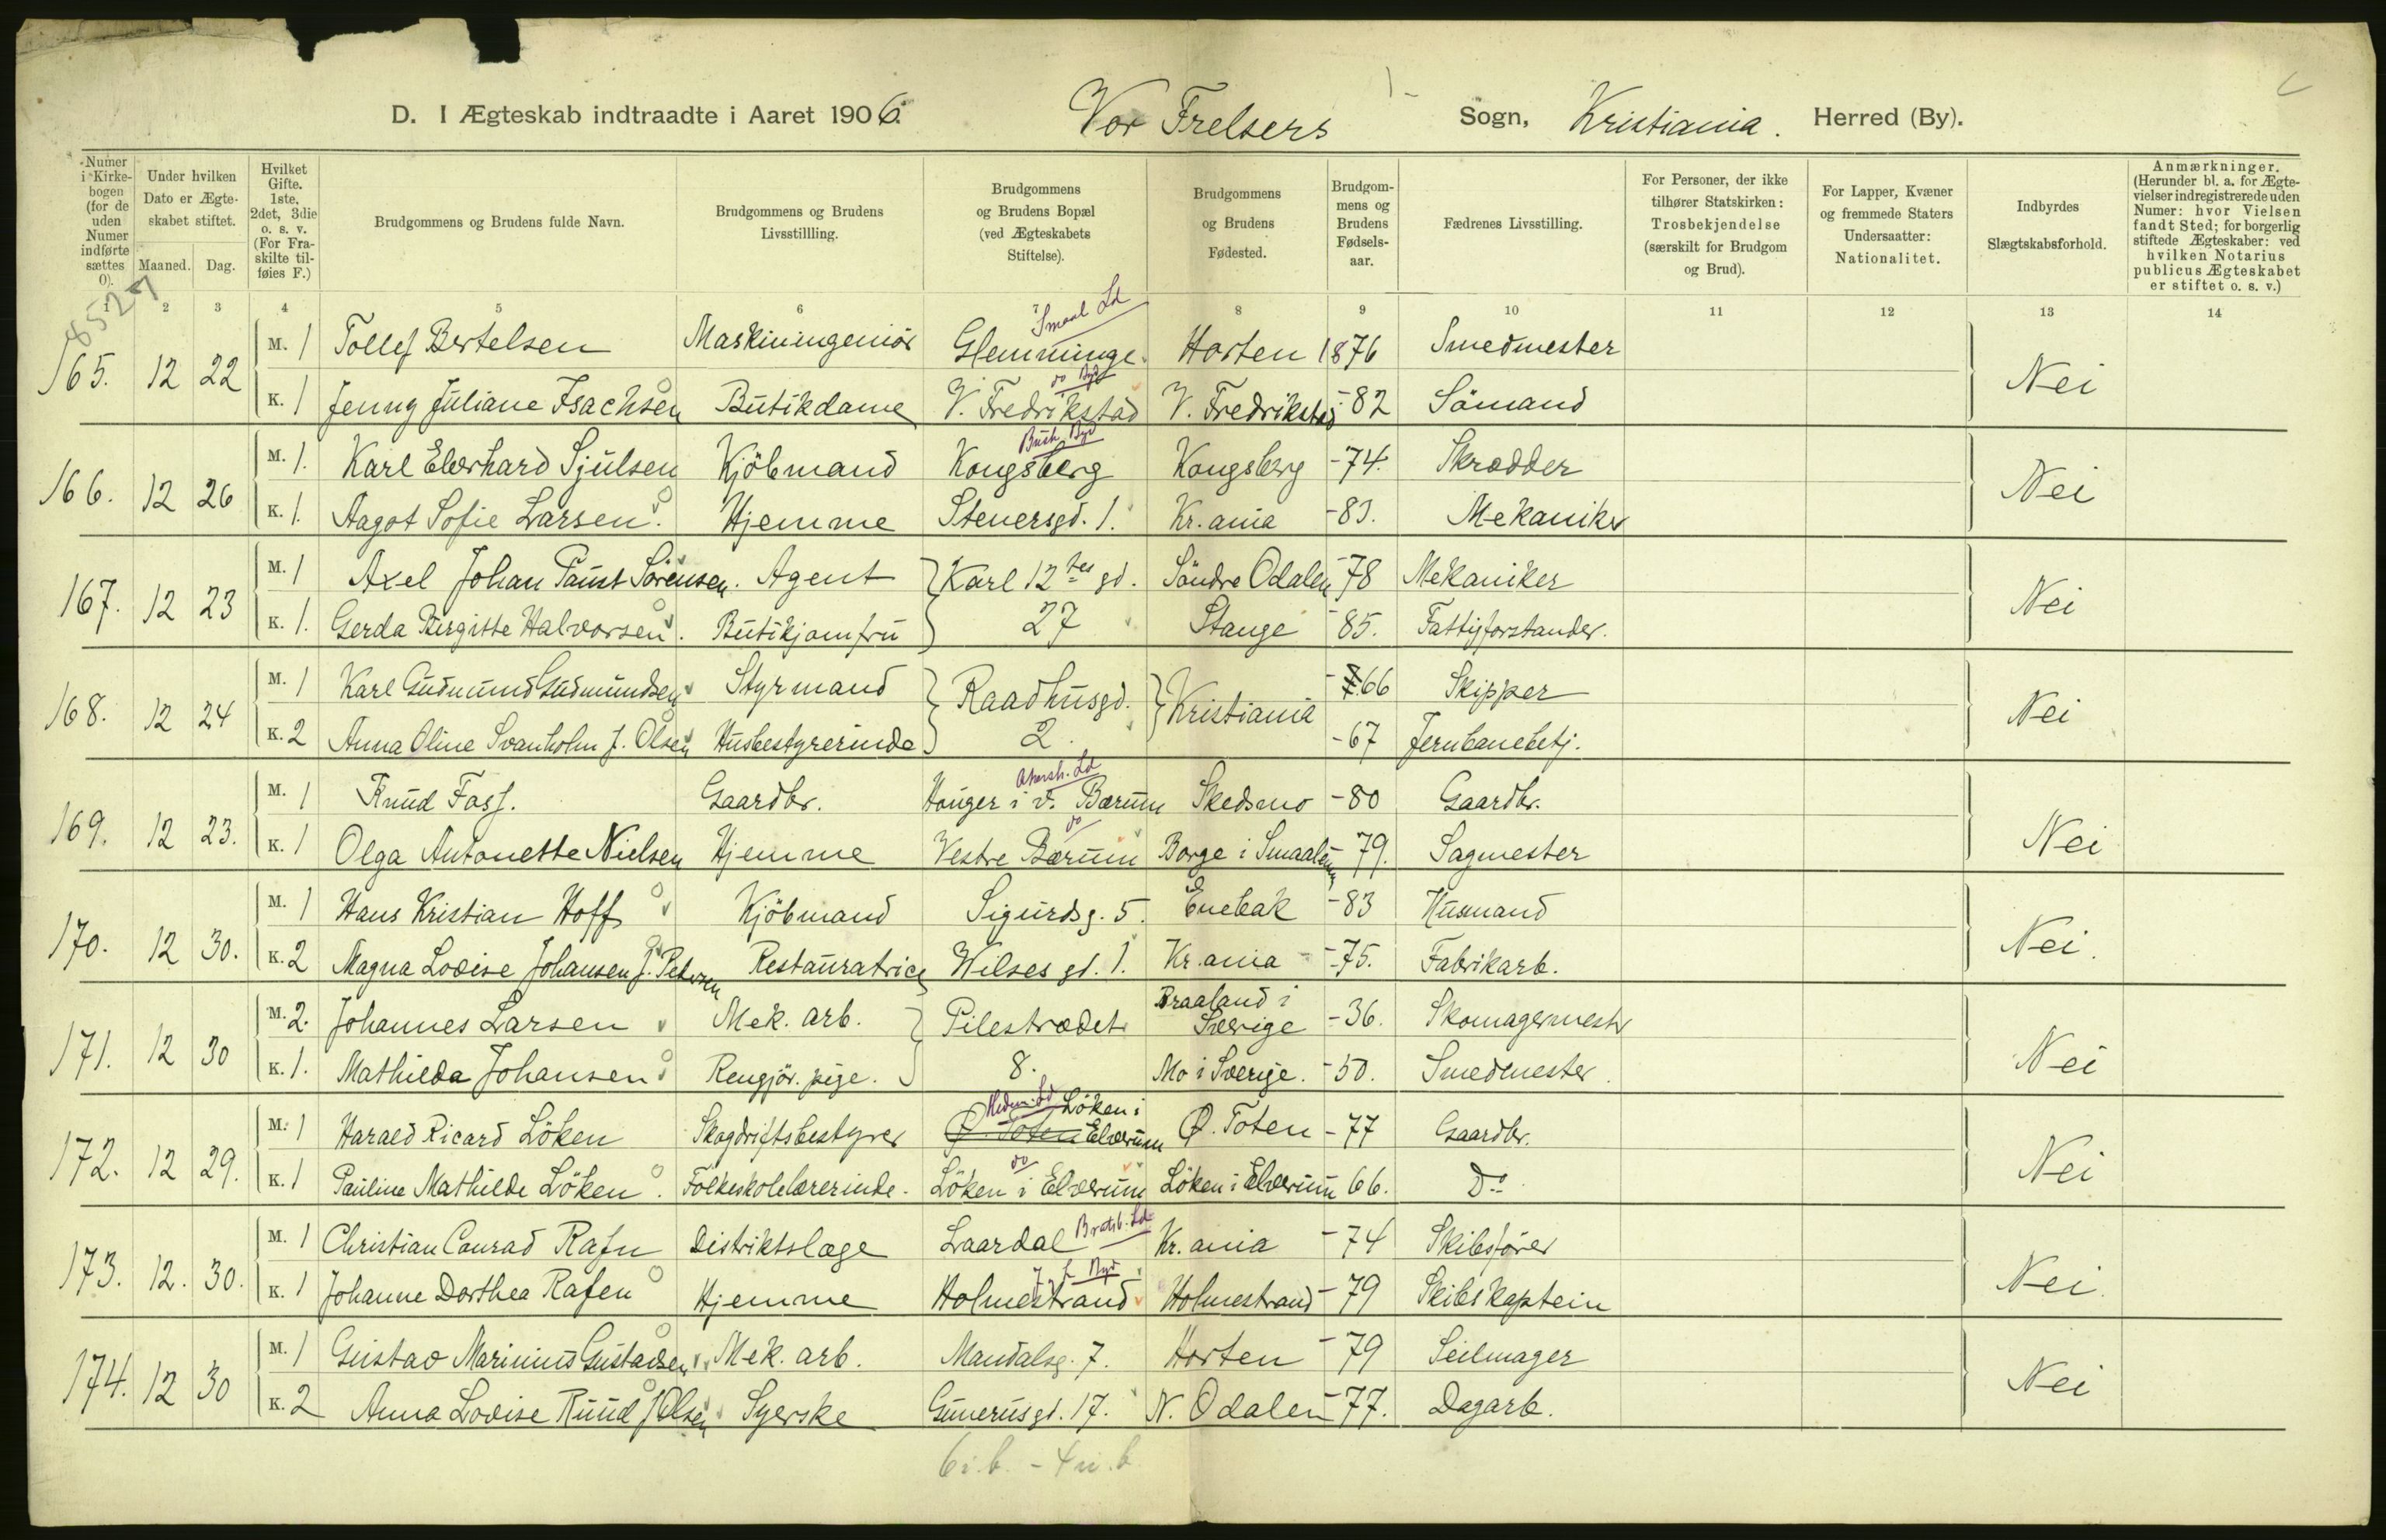 D. I Ægteskab indtraadte i Aaret 1906. Vor Frelsers Sogn, Kristiania. Herred (By).
Numer i Kirkebogen (for de uden Numer indførte sættes 0).
Under hvilken Dato er Ægteskabet stiftet.
Maaned. Dag.
Hvilket Gifte. 1ste, 2det, 3die o. s. v. (For Fraskilte tilføies F.)
Brudgommens og Brudens fulde Navn.
Brudgommens og Brudens Livsstillling.
Brudgommens og Brudens Bopæl (ved Ægteskabets Stiftelse).
Brudgommens og Brudens Fødested.
Brudgommens og Brudens Fødselsaar.
Fædrenes Livsstilling.
For Personer, der ikke tilhører Statskirken: Trosbekjendelse (særskilt for Brudgom og Brud).
For Lapper, Kvæner og fremmede Staters Undersaatter: Nationalitet.
Indbyrdes Slægtskabsforhold.
Anmærkninger. (Herunder bl. a. for Ægtevielser indregistrerede uden Numer: hvor Vielsen fandt Sted; for borgerlig stiftede Ægteskaber: ved hvilken Notarius publicus Ægteskabet er stiftet o. s. v.)
1 2 3 4 5 6 7 8 9 10 11 12 13 14
8527
Smaal Ld
165. 12 22 M. 1 Tollef Bertelsen Maskiningeniör Glemminge. Horten 1876 Smedmester Nei
do Byd
K. 1 Jenny Juliane Isachsen Butikdame V. Fredrikstad V. Fredrikstad -82 Sömand
Busk. Byd
166. 12 26 M. 1. Karl Eberhard Sjulsen Kjöbmand Kongsberg Kongsberg -74. Skrædder Nei
K. 1. Aagot Sofie Larsen. Hjemme Stenersgd. 1. Kr.ania -83. Mekaniker
167. 12 23 M. 1 Axel Johan Sörensen. Agent Karl 12tes gd. Söndre Odalen -78 Mekaniker Nei
K. 1. Gerda Birgitte Halvorsen. Butikjomfru 27 Stange -85. Fattigforstander.
168. 12 24 M. 1 Karl Gudmund Gudmundsen Styrmand Raadhusgd. Kristiania -66 Skipper Nei
K. 2 Anna Oline Svanholm f. Olsen Husbestyrerinde 2. -67 Jernbanebetj.
Akersh. Ld
169. 12 23. M. 1 Knud Foss. Gaardbr. Hauger i v. Bærum Skedsmo -80 Gaardbr. Nei
do
K. 1 Olga Antonette Nielsen Hjemme Vestre Bærum Borge i Smaalenene 79. Sagmester
170. 12 30. M. 1 Hans Kristian Hoff Kjöbmand Sigurdsg. 5. Enebak -83 Husmand Nei.
K. 2 Magna Lovise Johansen f. Petersen Restauratrice Wilses gd. 1. Kr.ania -75. Fabrikarb.
171. 12 30 M. 2. Johannes Larsen Mek. arb. Pilestrædet Braaland i Sverige -36. Skomagermestr Nei
K. 1. Mathilda Johansen Rengjör. pige. 8. Mo i Sverige. -50. Smedmester.
Hedm. Ld
172. 12 29. M. 1 Harald Ricard Löken Skogdriftsbestyrer Ø. Toten Löken i Elverum Ø. Toten -77 Gaardbr. Nei
do
K. 1 Pauline Mathilde Löken. Folkeskolelærerinde. Löken i Elverum Löken i Elverum 66. Do
173. 12. 30. M. 1 Christian Conrad Rafn Distriktslæge Laardal Bratsb. Ld Kr.ania -74 Skibsförer Nei.
J. L. Byd
K. 1 Johanne Dorthea Rafen Hjemme Holmestrand Holmestrand -79 Skibskaptein
174. 12 30 M. 1 Gustav Marinius Gustavsen Mek. arb. Mandalsg. 7. Horten -79 Seilmager Nei
K. 2 Anna Lovise Ruud f. Olsen Syerske Gunerusgd. 17. N. Odalen -77. Dagarb.
6 i.b. - 4 u.b.